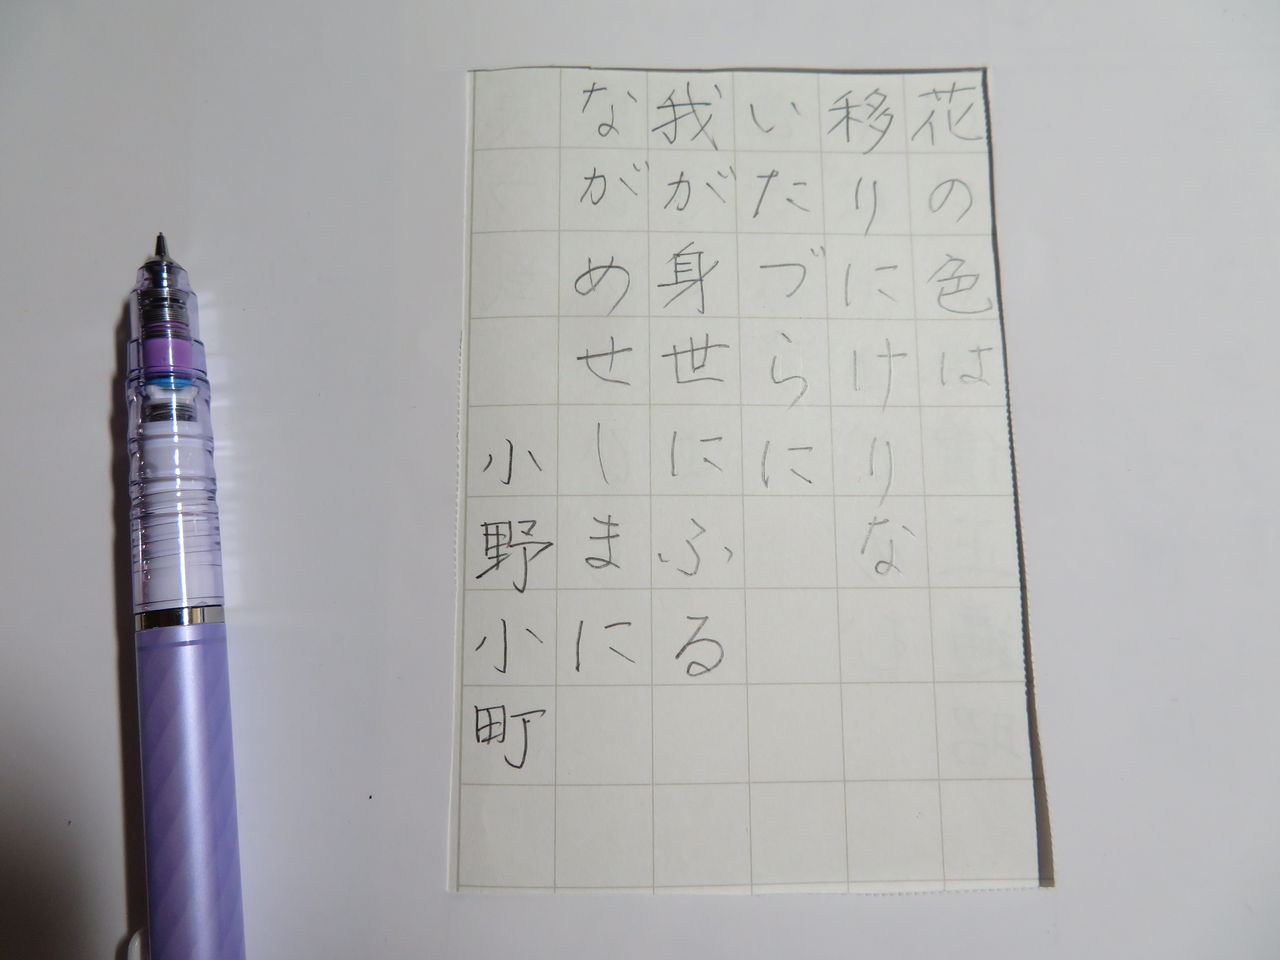 花の色は
移りにけりな
いたづらに
我が身世にふる
ながめせしまに
小野小町